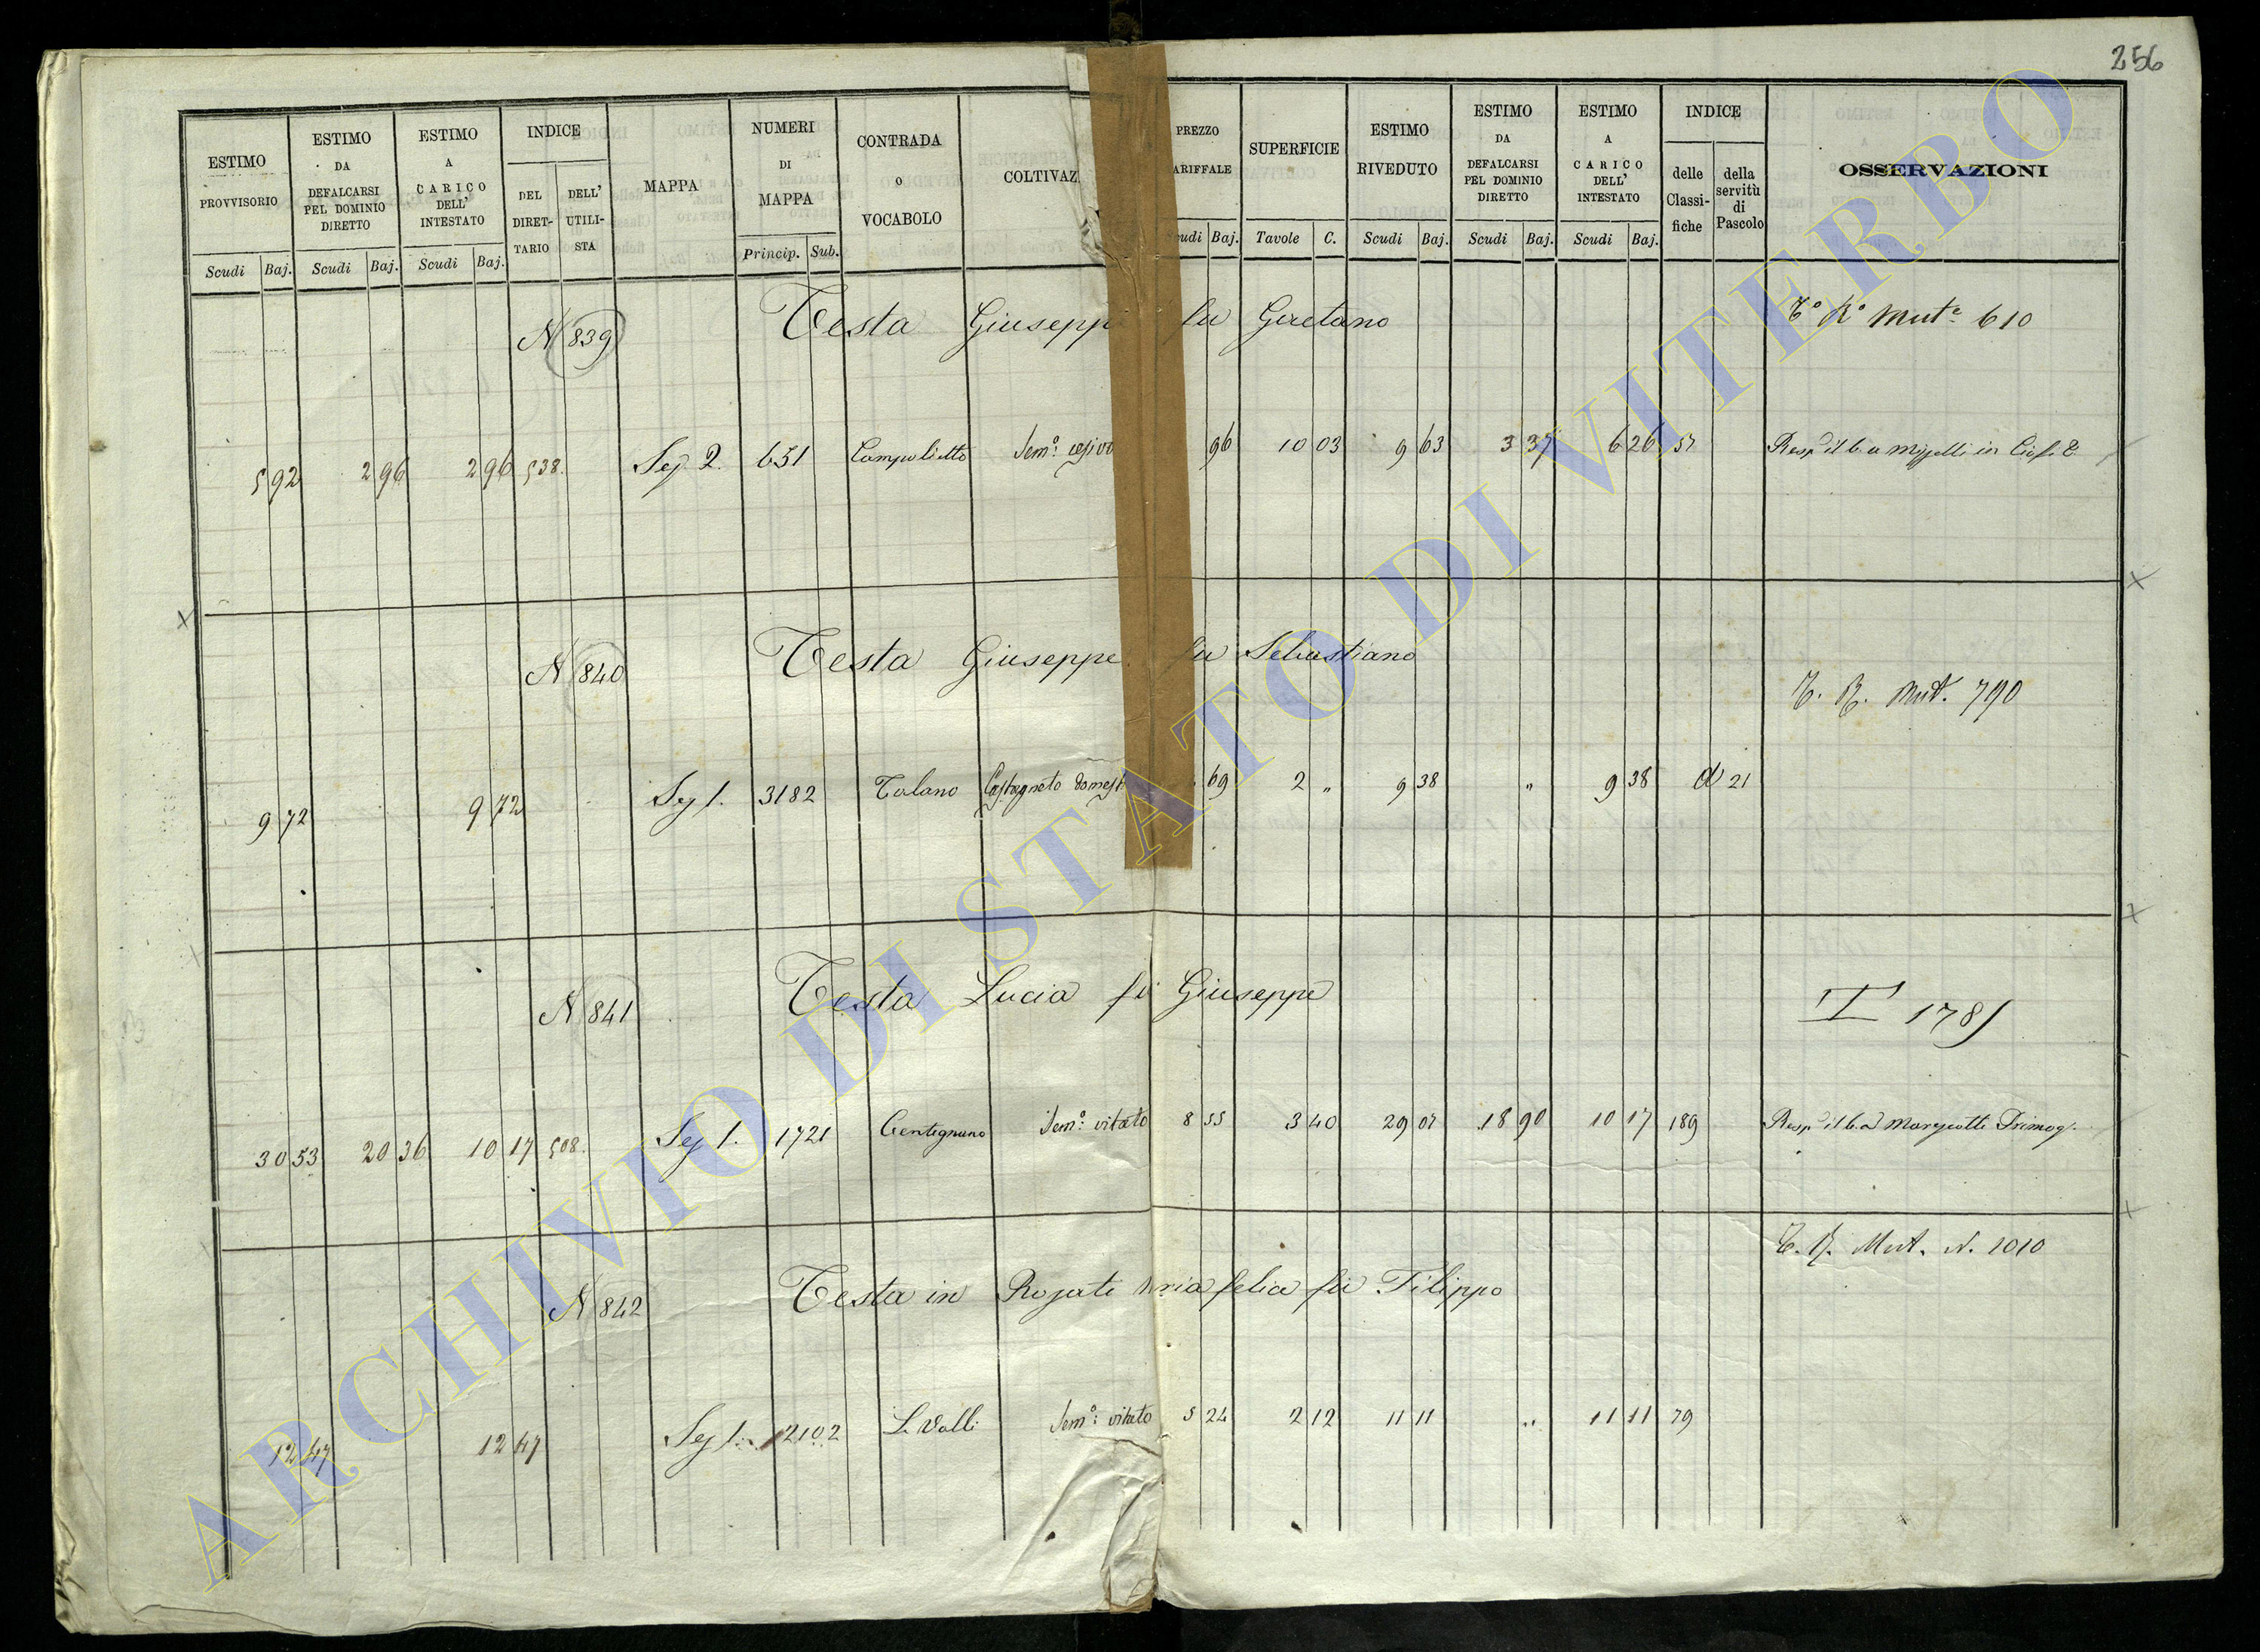 256
ESTIMO PROVVISORIO Scudi Baj.
ESTIMO DA DEFALCARSI PEL DOMINIO DIRETTO Scudi Baj.
ESTIMO A CARICO DELL' INTESTATO Scudi Baj.
INDICE DEL DIRET-TARIO DELL' UTILI-STA
MAPPA
NUMERI DI MAPPA Princip. Sub.
CONTRADA O VOCABOLO
COLTIVAZ
PREZZO ARIFFALE Scudi Baj.
SUPERFICIE Tavole C.
ESTIMO RIVEDUTO Scudi Baj.
ESTIMO DA DEFALCARSI PEL DOMINIO DIRETTO Scudi Baj.
ESTIMO A CARICO DELL' INTESTATO Scudi Baj.
INDICE delle Classi-fiche della servitù di Pascolo
OSSERVAZIONI
N 839 Testa Giuseppe fu Gaetano Mut. 610
5 92 2 96 2 96 538. Sez 2. 651 Sem.° 96 10 03 9 63 3 37 6 26 57
N 840 Testa Giuseppe fu Sebastiano T. R. Mut. 790
9 72 9 72 Sez 1. 3182 Talano Castagneto domest 69 2 " 9 38 " 9 38 21
N 841 Testa Lucia fu Giuseppe T 1781
30 53 20 36 10 17 508. Sez 1. 1721 Centignano Sem.° vitato 8 55 3 40 29 07 18 90 10 17 189
T. R. Mut. N. 1010
N 842 Testa in Rosati felica fu Filippo
12 47 12 47 Sez 1. 2102 Le Valli Sem.° vitato 5 24 2 12 11 11 " 11 11 79
ARCHIVIO DI STATO DI VITERBO